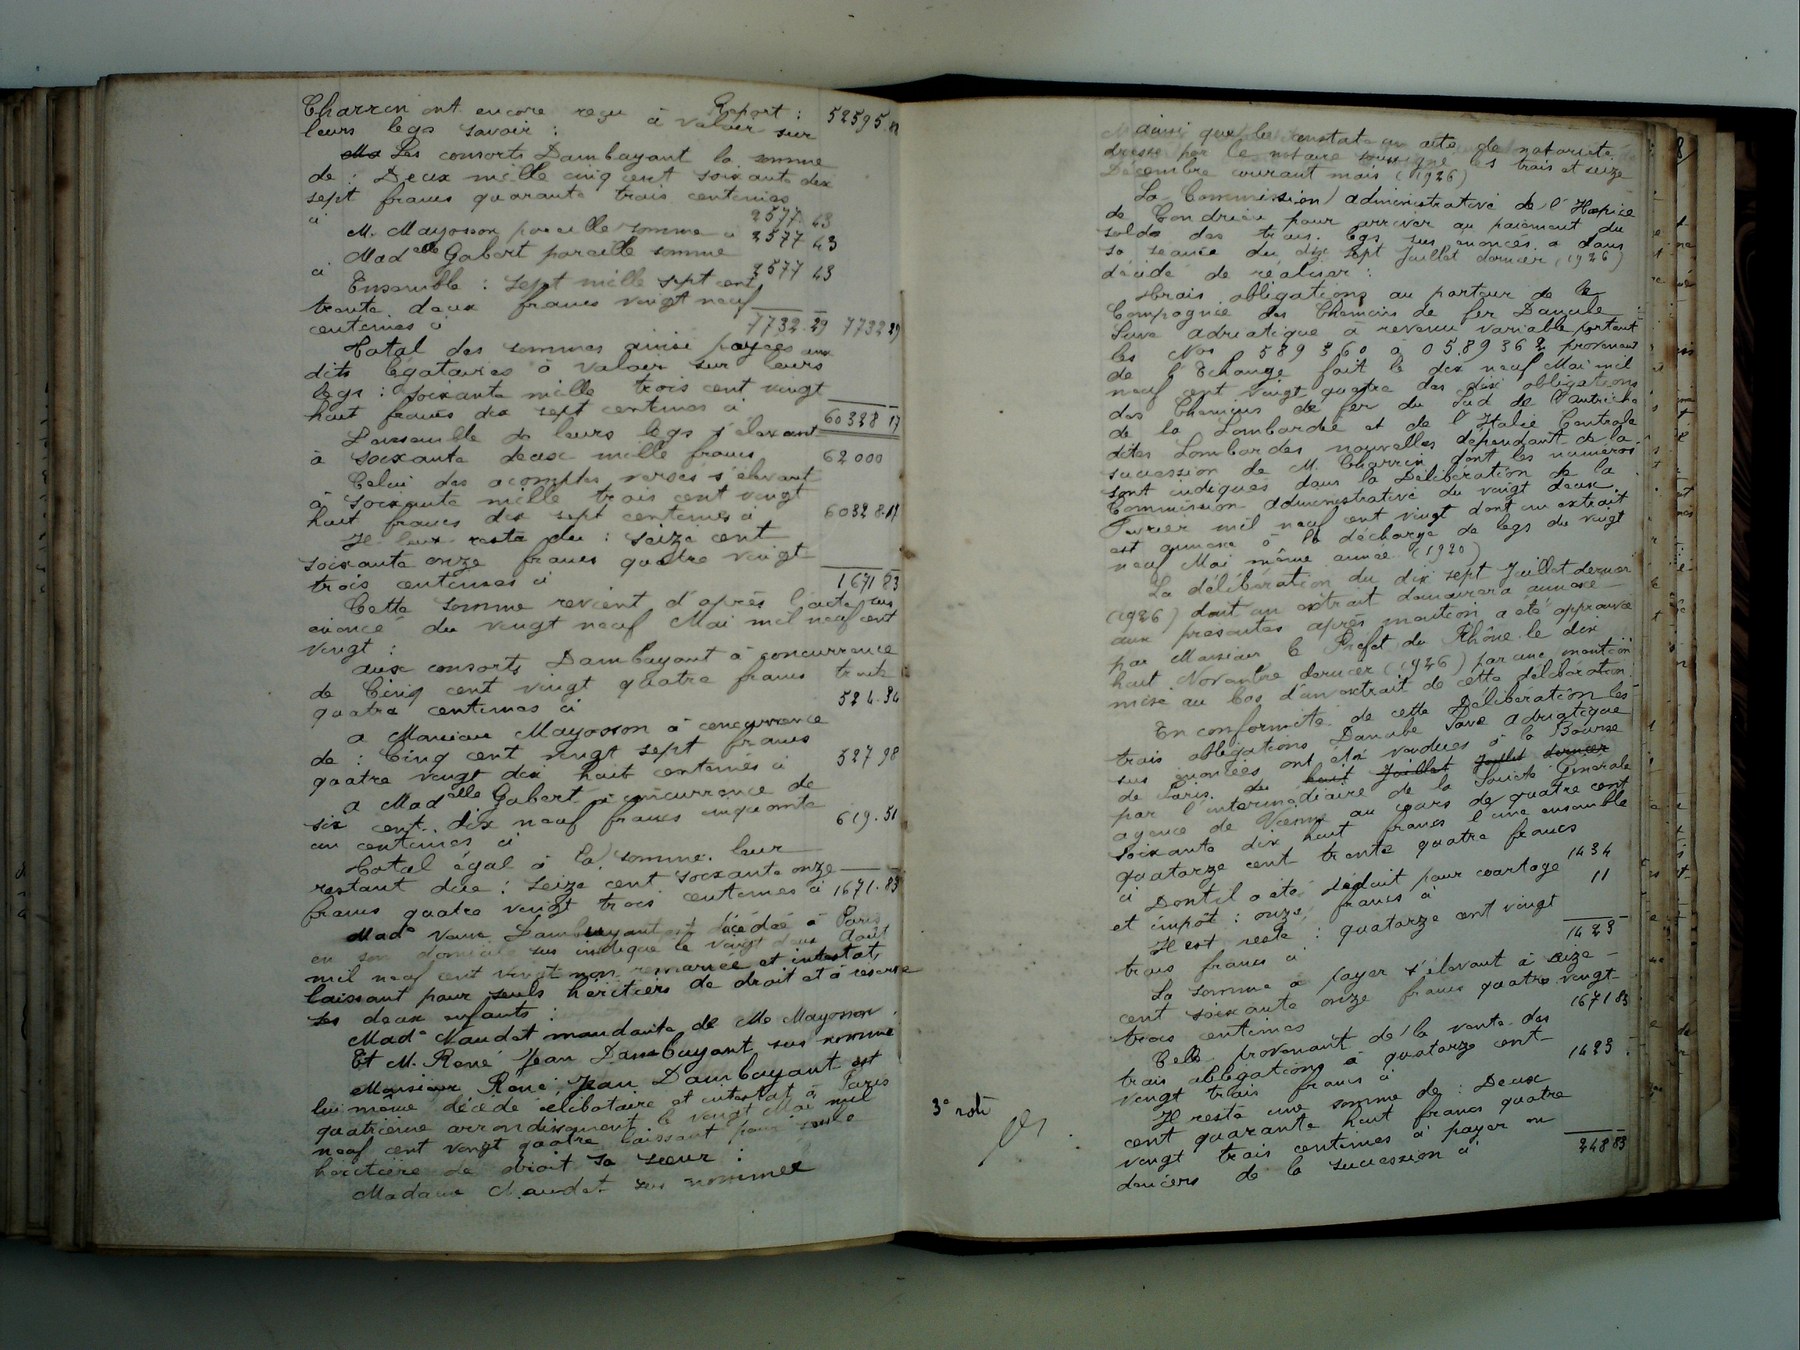 Charrin ont encore reçu à Report : 52595.88
leurs legs savoir : à valoir sur
Les consorts Dambuyant la somme
de : Deux mille cinq cent soixante dix
sept francs quarante trois centimes
à 2577 43
M. Mayosson pareille somme à 2577 43
Mad elle Gabert pareille somme
à 2577 43
Ensemble : Sept mille sept cent
trente deux francs vingt neuf
centimes à 7732.29 7732 29
Total des sommes ainsi payées aux
dits légataires à valoir sur leurs
legs : Soixante mille trois cent vingt
huit francs dix sept centimes à 60328 17
L'ensemble de leurs legs s'élevant
à soixante deux mille francs 62000
Celui des acomptes versés s'élevant
à soixante mille trois cent vingt
huit francs dix sept centimes à 60328.17
Il leur reste du : Seize cent
soixante onze francs quatre vingt
trois centimes à 1671 83
Cette somme revient d'après l'acte sus
énoncé du vingt neuf Mai mil neuf cent
vingt :
aux consorts Dambuyant à concurrence
de Cinq cent vingt quatre francs trente
quatre centimes à 524.34
a Monsieur Mayosson à concurrence
de : Cinq cent vingt sept francs
quatre vingt dix huit centimes à 527 98
a Mad elle Gabert à concurrence de
six cent dix neuf francs cinquante
un centimes à 619.51
Total égal à la somme leur
restant due : Seize cent soixante onze
francs quatre vingt trois centimes à 1671.83
Made Veuve Dambuyant est décédée à Paris
en son domicile sus indiqué le vingt deux Août
mil neuf cent vingt non remariée et intestat,
laissant pour seuls héritiers de droit et à réserve
ses deux enfants :
Made Naudet mandante de Me Mayosson
Et M. René Jean Dambuyant sus nommé
Monsieur René Jean Dambuyant est
lui même décédé célibataire et intestat à Paris
quatrième arrondissement le vingt Mai mil
neuf cent vingt quatre laissant pour seule
héritière de droit sa soeur :
Madame Naudet sus nommée
ainsi que les constate un acte de notoriété
dressé par le notaire soussigné les trois et seize
Décembre courant mois (1926)
La Commission administrative de l'Hospice
de Condrieu pour arriver au paiement du
solde des trois legs sus énoncés a dans
sa séance du dix sept Juillet dernier (1926)
décidé de réaliser :
Trois obligations au porteur de la
Compagnie des Chemins de fer Danube
Save adriatique à revenu variable portant
les Nos 589360 à 0589362 provenant
de l'Echange fait le dix neuf Mai mil
neuf cent vingt quatre des dix obligations
des Chemins de fer du Sud de l'Autriche
de la Lombardie et de l'Italie Centrale
dites Lombardes nouvelles dépendant de la
succession de M. Charrin dont les numéros
sont indiqués dans la Délibération de la
Commission administrative du vingt deux
Février mil neuf cent vingt dont un extrait
est annexé à la décharge de legs du vingt
neuf Mai même année (1920)
La délibération du dix sept Juillet dernier
(1926) dont un extrait demeurera annexé
aux présentes après mention a été approuvé
par Monsieur le Préfet du Rhône le dix
huit Novembre dernier (1926) par une mention
mise au bas d'un extrait de cette délibération.
En conformité de cette Délibération les
trois obligations Danube Save adriatique
sus énoncées ont été vendues à la Bourse
de Paris du huit Juillet Juillet dernier
par l'intermédiaire de la Société Générale
agence de Vienne au cours de quatre cent
soixante dix huit francs l'une ensemble
quatorze cent trente quatre francs
à 1434
Dont il a été déduit pour courtage
et impôt : onze francs à 11
Il est resté : quatorze cent vingt
trois francs à 1423
La somme à payer s'élevant à seize
cent soixante onze francs quatre vingt
trois centimes 1671 83
Celle provenant de la vente des
trois obligations à quatorze cent
vingt trois francs à 1423
Il reste une somme de : Deux
cent quarante huit francs quatre
vingt trois centimes à payer en
deniers de la succession à 248 83
3e role